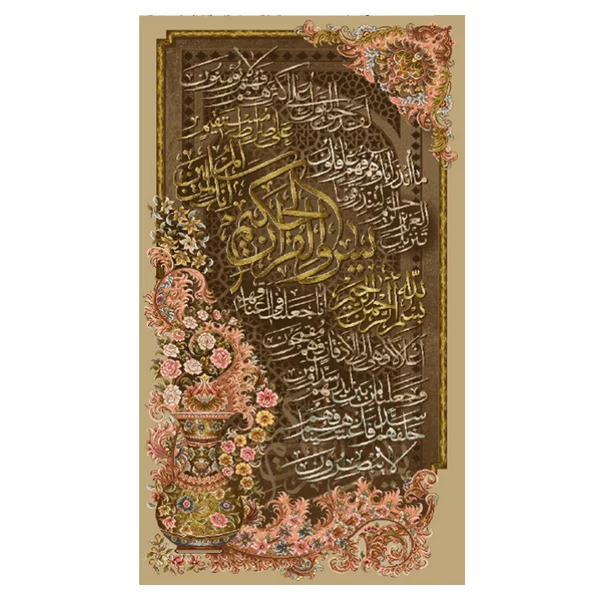 بسم الله الرحمن الرحيم
يس والقرآن الحكيم
إنك لمن المرسلين
على صراط مستقيم
تنزيل العزيز الرحيم لتنذر قوما
ما أنذر آباؤهم فهم غافلون
لقد حق القول على أكثرهم
فهم لا يؤمنون
إنا جعلنا في أعناقهم
أغلالا فهي إلى الأذقان فهم مقمحون
وجعلنا من بين أيديهم سدا ومن
خلفهم سدا فأغشيناهم فهم
لا يبصرون